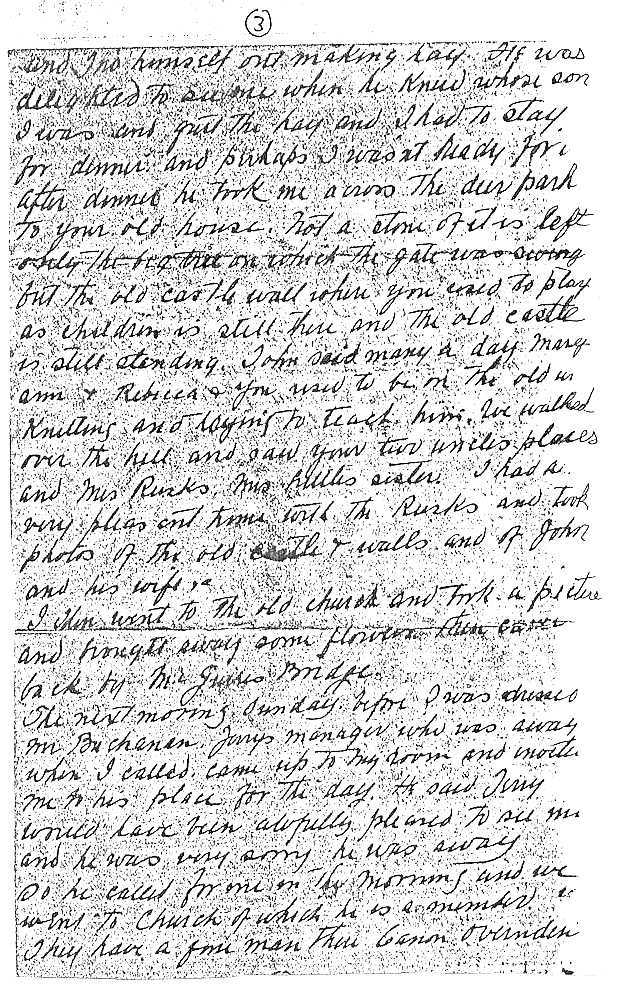 3
and Jno himself out making hay. He was
delighted to see me when he knew whose son
I was and quit the hay and I had to stay
for dinner and perhaps I wasnt ready for i
after dinner he took me across the deer park
to your old house. Not a stone of it is left
only the big tree on which the gate was swung
but the old castle wall where you used to play
as children is still there and the old castle
is still standing. John said many a day Mary
ann & Rebecca & you used to be on the old
Knitting and trying to teach him. We walked
over the hill and saw your two uncles places
and Mrs Rusks, Mrs sister. I had a
very pleasent time with the Rusks and took
photos of the old castle & walls and of John
and his wife
I then went to the old church and took a picture
and brought away some flowers then came
back by Mr Bridge.
The next morning Sunday before I was dressed
Mr Buchanan Jerrys manager who was away
when I called came up to my room and invite
me to his place for the day. He said Jerry
would have been alofully pleased to see me
and he was very sorry he was away
So he called for me in the morning and we
went to Church of which he is a member
They have a fine man there Canon Ovenden